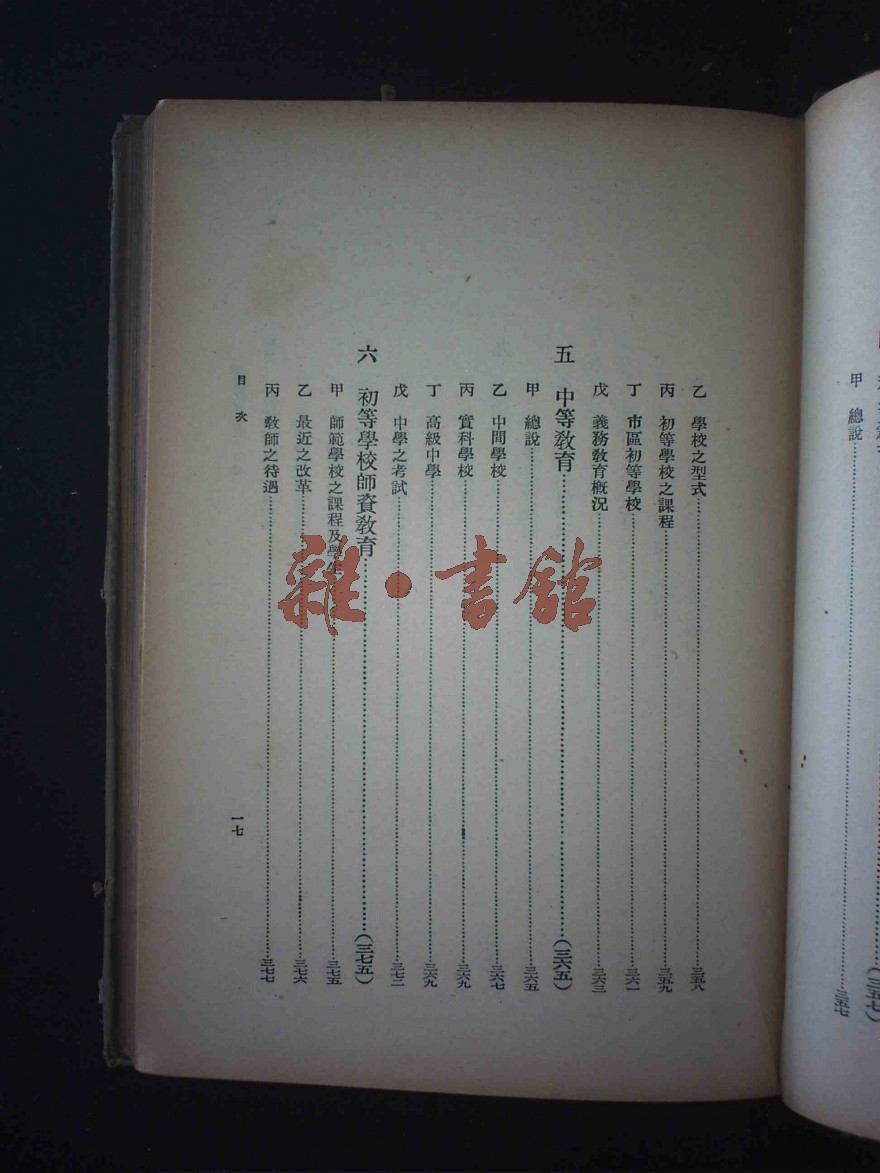 甲　總說……三五七
(三五七)
乙　學校之型式……三五八
丙　初等學校之課程……三五九
丁　市區初等學校……三六一
戊　義務教育概況……三六三
五　中等教育……(三六五)
甲　總說……三六五
乙　中間學校……三六七
丙　實科學校……三六九
丁　高級中學……三六九
戊　中學之考試……三七二
六　初等學校師資教育……(三七五)
甲　師範學校之課程及學生……三七五
乙　最近之改革……三七六
丙　教師之待遇……三七七
目次
一七
雜·書館